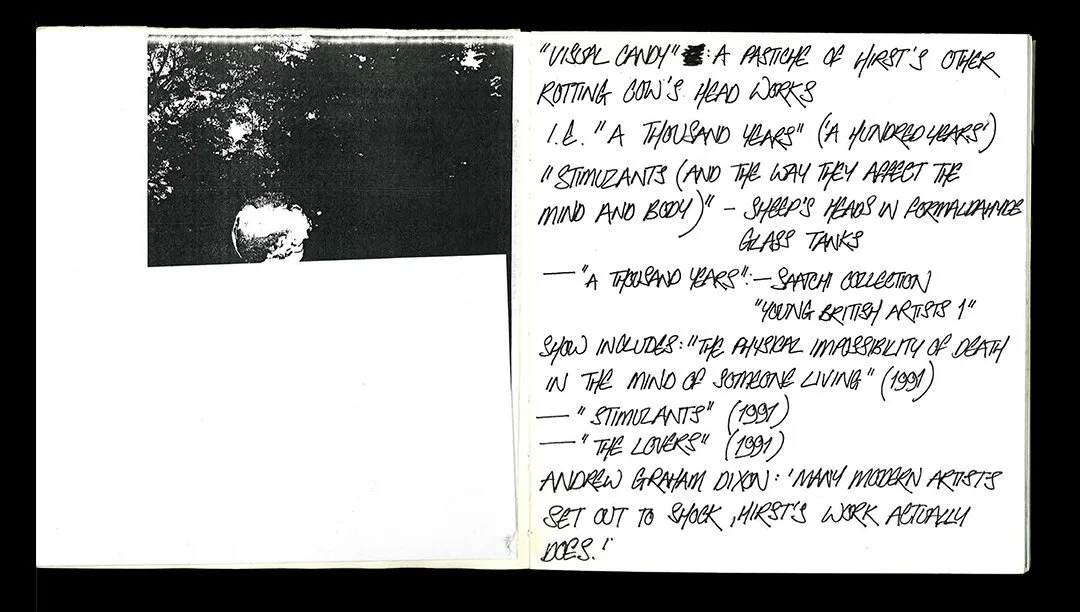 "VISUAL CANDY" : A PASTICHE OF HIRST'S OTHER
ROTTING COW'S HEAD WORKS
I.E. "A THOUSAND YEARS" ('A HUNDRED YEARS')
"STIMULANTS (AND THE WAY THEY AFFECT THE
MIND AND BODY)" – SHEEP'S HEADS IN FORMALDAHYDE
GLASS TANKS
— "A THOUSAND YEARS":– SAATCHI COLLECTION
"YOUNG BRITISH ARTISTS 1"
SHOW INCLUDES: "THE PHYSICAL IMPOSSIBILITY OF DEATH
IN THE MIND OF SOMEONE LIVING" (1991)
— "STIMULANTS" (1991)
— "THE LOVERS" (1991)
ANDREW GRAHAM DIXON: 'MANY MODERN ARTISTS
SET OUT TO SHOCK, HIRST'S WORK ACTUALLY
DOES.'